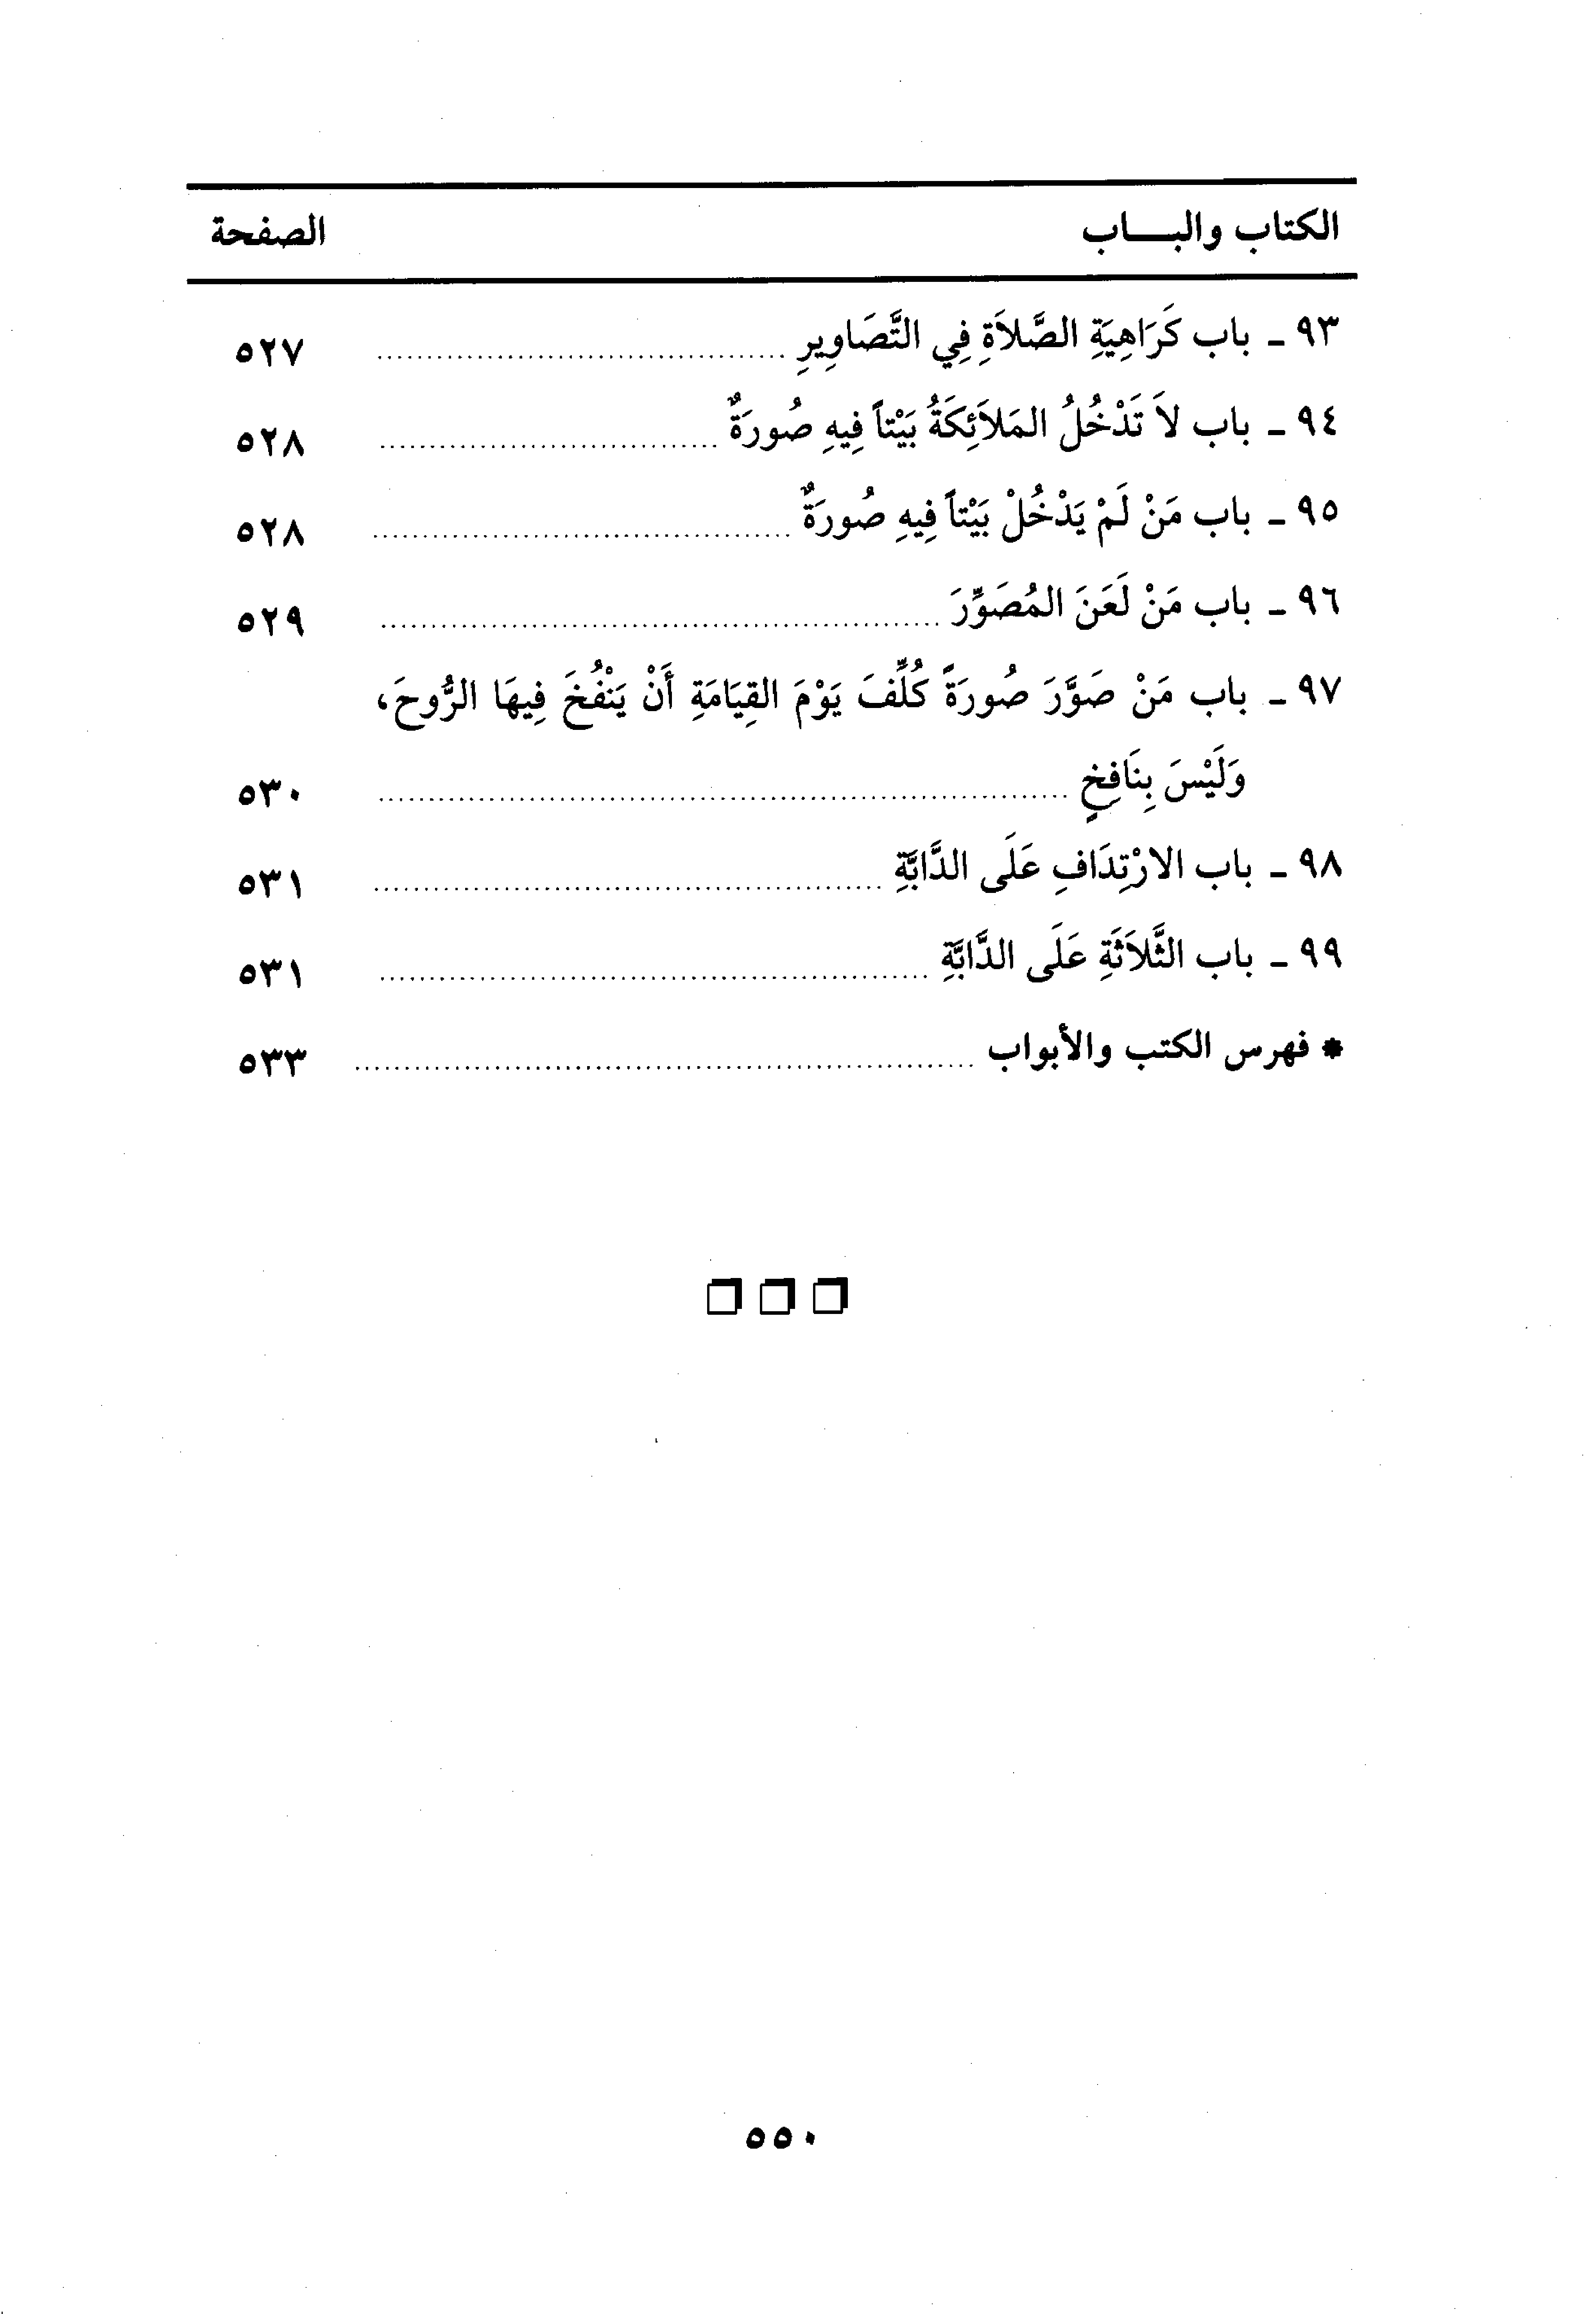 الكتاب والبـــاب الصفحة
٩٣ - باب كَرَاهِيَةِ الصَّلاَةِ فِي التَّصَاوِيرِ ........ ٥٢٧
٩٤ - باب لاَ تَدْخُلُ المَلاَئِكَةُ بَيْتاً فِيهِ صُورَةٌ ........ ٥٢٨
٩٥ - باب مَنْ لَمْ يَدْخُلْ بَيْتاً فِيهِ صُورَةٌ ........ ٥٢٨
٩٦ - باب مَنْ لَعَنَ المُصَوِّرَ ........ ٥٢٩
٩٧ - باب مَنْ صَوَّرَ صُورَةً كُلِّفَ يَوْمَ القِيَامَةِ أَنْ يَنْفُخَ فِيهَا الرُّوحَ،
وَلَيْسَ بِنَافِخٍ ........ ٥٣٠
٩٨ - باب الارْتِدَافِ عَلَى الدَّابَّةِ ........ ٥٣١
٩٩ - باب الثَّلاَثَةِ عَلَى الدَّابَّةِ ........ ٥٣١
* فهرس الكتب والأبواب ........ ٥٣٣
٥٥٠